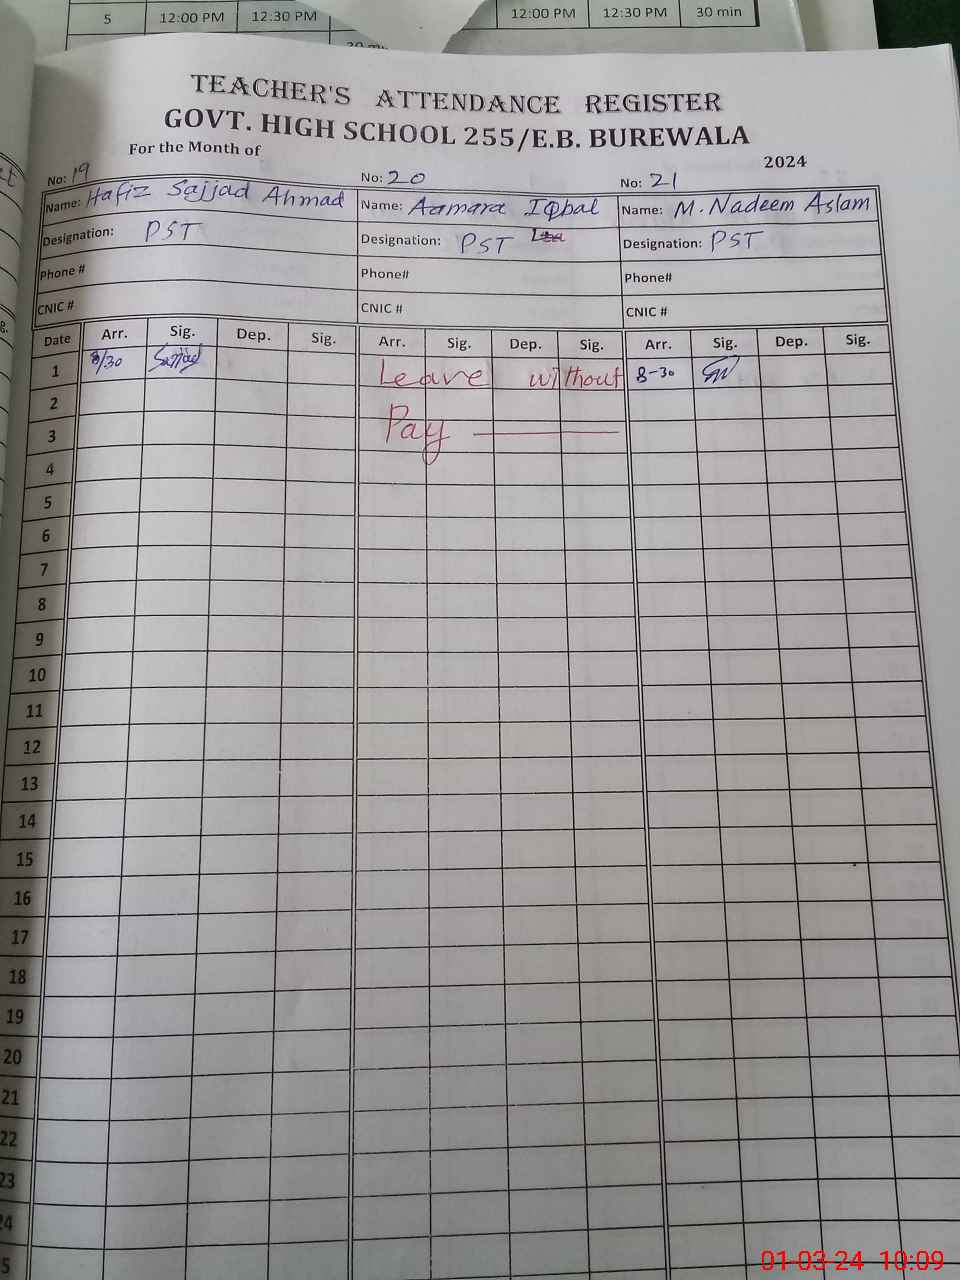 5 12:00 PM 12:30 PM
12:00 PM 12:30 PM 30 min
TEACHER'S ATTENDANCE REGISTER
GOVT. HIGH SCHOOL 255/E.B. BUREWALA
For the Month of 2024
No: 19 No: 20 No: 21
Name: Hafiz Sajjad Ahmad Name: Aamara IQbal Name: M. Nadeem Aslam
Designation: PST Designation: PST Designation: PST
Phone # Phone# Phone#
CNIC # CNIC # CNIC #
Date Arr. Sig. Dep. Sig. Arr. Sig. Dep. Sig. Arr. Sig. Dep. Sig.
1 8/30 Sajjad Leave without 8-30
2
3 Pay
4
5
6
7
8
9
10
11
12
13
14
15
16
17
18
19
20
21
22
23
24
01-03-24 10:09